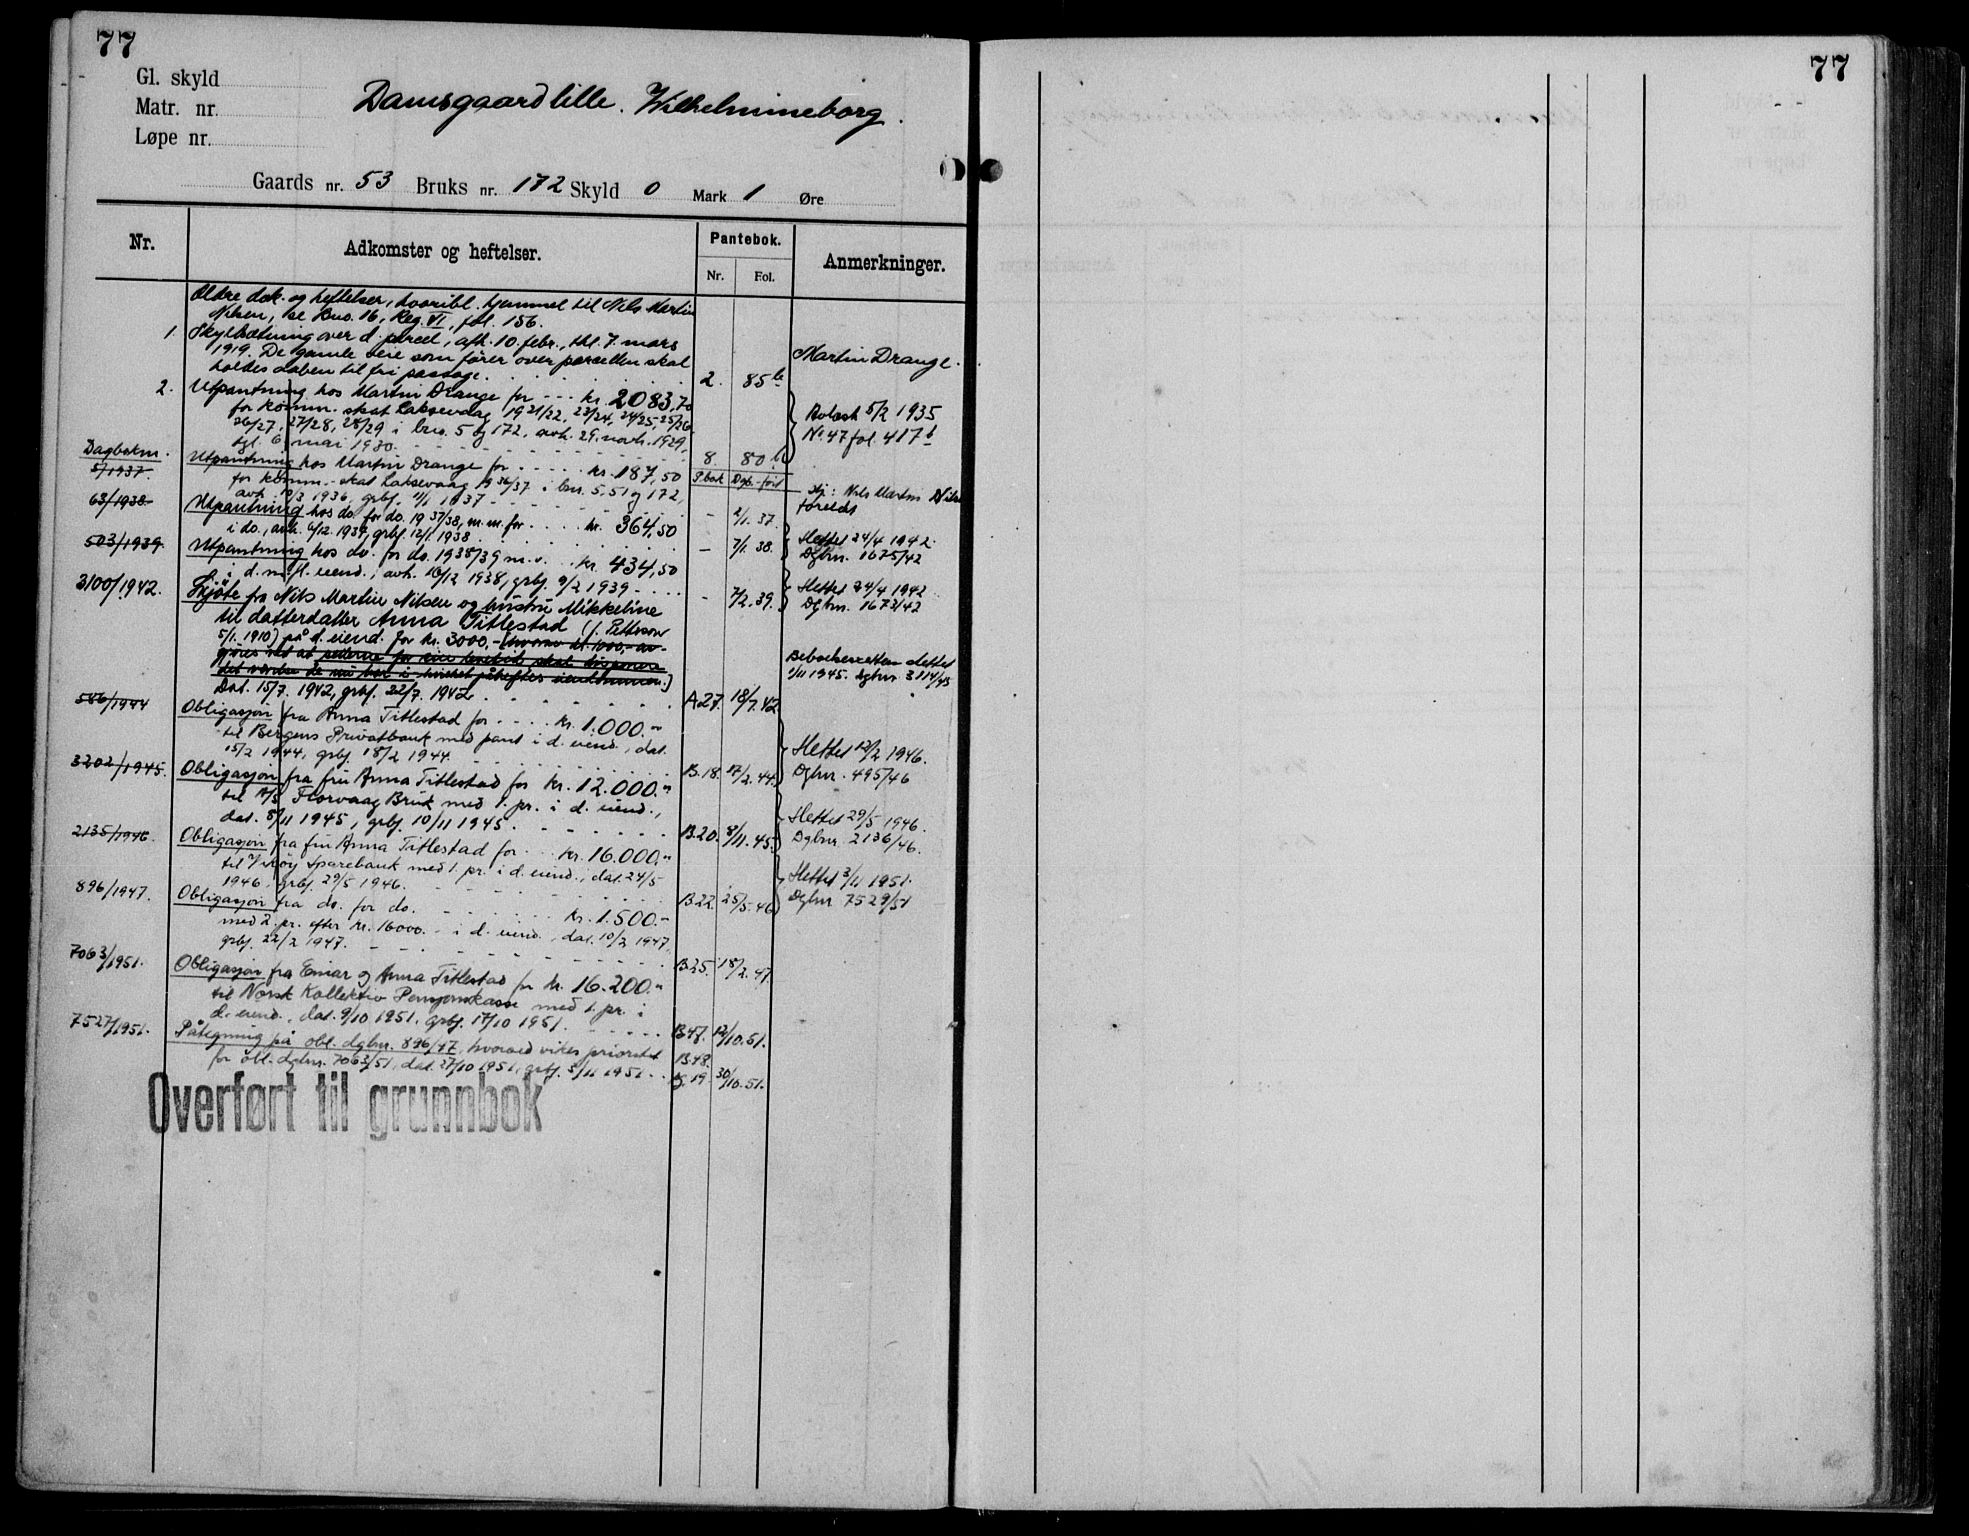 77
77
Gl. skyld
Matr. nr.
Løpe nr.
Damsgaard lille. Wilhelmineborg.
Gaards nr. 53 Bruks nr. 172 Skyld 0 Mark 1 Øre
Nr. Adkomster og heftelser. Pantebok. Anmerkninger.
Nr. Fol.
Ældre dok. og heftelser, hvoribl. hjemmel til Nils Martin
Nilsen, se Bno. 16, Reg. VI, fol. 156.
1. Skyldsætning over d. parcel, afh. 10. febr., thl. 7. mars
1919. De gamle veie som fører over parcellen skal Martin Drange.
holdes aaben til fri passage. 2. 85 b
2. Utpantning hos Martin Drange for kr. 2083,70
for komm. skat Laksevaag 1921/22, 23/24, 24/25, 25/26 Avlæst 5/2 1935
26/27, 27/28, 28/29 i bno. 5 og 172, avh. 29. novbr. 1929, No 47 fol 417 b
tgl. 6. mai 1930. 8. 80 b
Dagboknr. Utpantning hos Martin Drange for kr. 187,50 P.bok Dgb.-ført
5/1937. for komm.-skat Laksevaag 1936/37 i bnr. 5, 51 og 172,
avh. 10/3 1936, grbf. 11/1 1937 - 2/1. 37. Hj: Nils Martin Nilsen
63/1938 Utpantning hos do. for do. 1937/38, m.m. for kr. 364,50
i do., avh. 6/12 1937, grbf. 12/1 1938. - 7/1. 38. Slettet 24/4 1942.
Dgbnr. 1675/42
503/1939. Utpantning hos do. for do. 1938/39 m.v. kr. 434,50
i d. m. fl. eiend., avh. 10/12 1938, grbf. 9/2 1939 - 7/2. 39. Slettet 24/4 1942
Dgbnr. 1673/42
3100/1942. Skjøte fra Nils Martin Nilsen og hustru Mikkeline
til datterdatter Anna Titlestad (f. Petterson
5/1. 1910) på d. eiend. for kr. 3000,- (hvorav kr. 1000,- av-
gjøres ved at sælgerne for sine levetid skal disponere Beboelsesretten slettet
det værelse de nu bor i hvilket påheftes eiendommen.) 1/11 1945. Dgbnr 3114/45
Dat. 15/7. 1942, grbf. 22/7. 1942. A27. 18/7. 42
586/1944 Obligasjon fra Anna Titlestad for kr. 1.000.-
til Bergens Privatbank med pant i d. eiend., dat.
15/2 1944, grbf. 18/2 1944. B.18. 17/2. 44. Slettet 12/2 1946.
Dgbnr. 495/46
3202/1945. Obligasjon fra fru Anna Titlestad for kr. 12.000.-
til A/S Florvaag Bruk med 1. pr. i d. eiend.,
dat. 8/11 1945, grbf. 10/11 1945. B.20. 8/11. 45. Slettet 29/5 1946.
Dgbnr. 2136/46.
2135/1946 Obligasjon fra fru Anna Titlestad for kr. 16.000.-
til Askøy Sparebank med 1. pr. i d. eiend., dat. 24/5
1946, grbf. 29/5 1946. B22. 25/5. 46 Slettet 3/11 1951.
Dgbnr 7529/51
896/1947. Obligasjon fra do. for do. kr. 1.500.-
med 2. pr. efter kr. 16000.- i d. eiend., dat. 10/2 1947,
grbf. 22/2 1947. B25. 18/2. 47.
7063/1951. Obligasjon fra Einar og Anna Titlestad for kr. 16.200.-
til Norsk Kollektiv Pensjonskasse med 1. pr. i
d. eiend., dat. 9/10 1951. grbf. 17/10 1951. B47. 12/10. 51.
7527/1951. Påtegning på obl. dgbnr. 896/47, hvorved vikes prioritet B48.
for obl. dgbnr. 7063/51, dat. 27/10 1951, grbf. 5/11 1951. 19 30/10. 51.
Overført til grunnbok